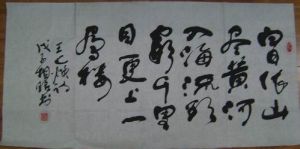 白日依山
尽黄河
入海流欲
穷千里
目更上一
层楼
王之涣诗
戊子